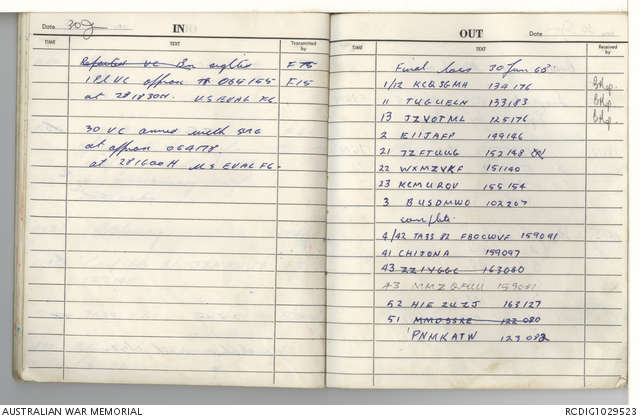 Date 30 J
IN
TIME
TEXT
Transmitted by
Reported VC Bn sighted F75
1 Pl VC approx 064155 F15
at 281830H. US EVAL F6
30 VC armed with
at approx 064178
at 281600H US EVAL F6.
OUT
Date
TIME
TEXT
Received by
Final locs 30 Jun 68
1/12 KCQJGMH 134176
11 TUGUELN 133183
13 JZVOTML 125176
2 EIIJAFP 149146
21 JZFTUUG 152148
22 WXMZVKF 151140
23 KCMUROV 155154
3 BUSDMWO 102207
complete.
4/42 TASS 82 FBOCWVF 159091
41 CHIZONA 159097
43 ZZIYGGC 163080
43 MMZQFUU 159081
52 HIEZUZJ 163127
51 MMOSSRE 122080
PNMKATW 123082
AUSTRALIAN WAR MEMORIAL
RCDIG1029523